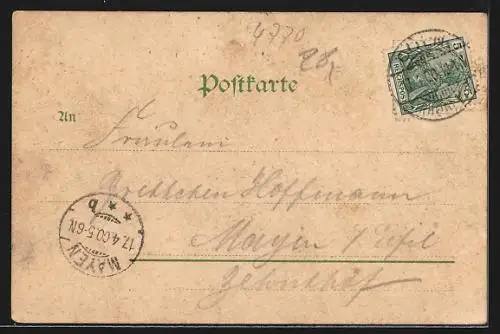 4370
Postkarte
An
Fräulein
Gretchen Hoffmann
Mayen / Eifel
MAYEN
17.4.00.5-6N
* * b
5